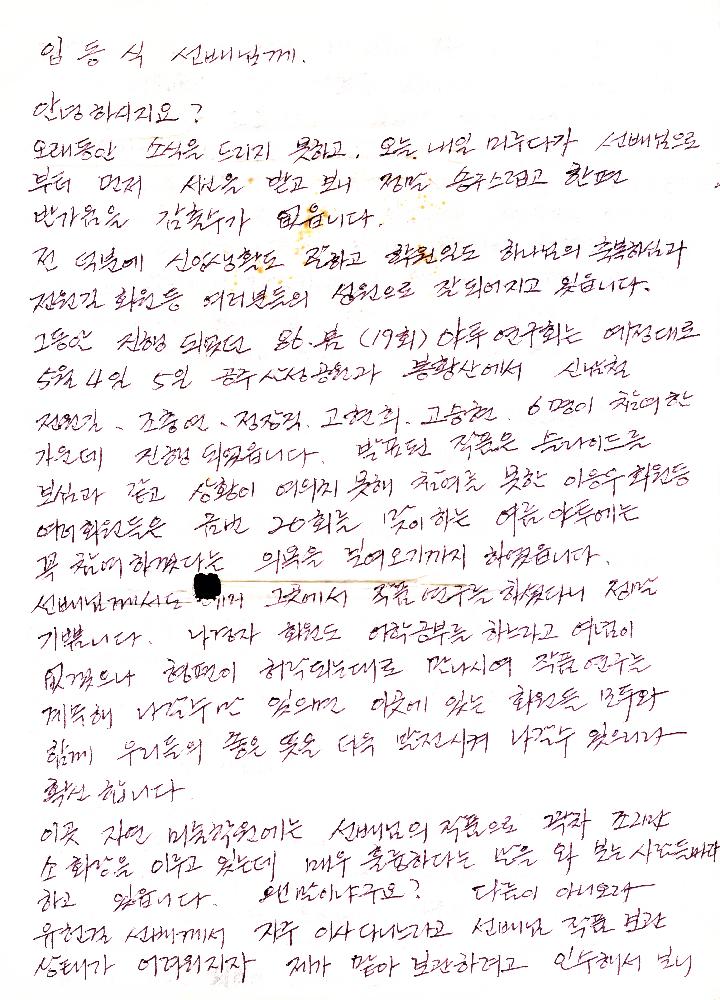 임 동 식 선배님께.
안녕하시지요?
오래동안 소식을 드리지 못하고. 오늘. 내일 미루다가 선배님으로
부터 먼저 서신을 받고 보니 정말 송구스럽고 한편
반가움을 감출수가 없읍니다.
전 덕분에 신입생활도 잘하고 학원일도 하나님의 축복하심과
전원길 회원등 여러분들의 성원으로 잘 되어지고 있읍니다.
그동안 진행 되었던 86.봄 (19회) 야투 연구회는 예정대로
5월 4일 5일 공주산성공원과 봉황산에서 신남철
전원길、조충연、정장직. 고현희. 고승현. 6명이 참여한
가운데 진행 되었읍니다. 발표된 작품은 슬라이드를
보심과 같고 상황이 여의치 못해 참여를 못한 이응우 회원등
여러 회원들은 금번 20회를 맞이하는 여름 야투에는
꼭 참여하겠다는 의욕을 보여오기까지 하였읍니다.
선배님께서도 그곳에서 작품 연구를 하셨다니 정말
기쁩니다. 나경자 회원도 어학공부를 하느라고 여념이
없겠으나 형편이 허락되는대로 만나시여 작품 연구를
계속해 나갈수만 있으면 이곳에 있는 회원들 모두와
함께 우리들의 좋은 뜻을 더욱 발전시켜 나갈수 있으리라
확신 합니다.
이곳 자연 미술학원에는 선배님의 작품으로 꽉차 조그만
소 화랑을 이루고 있는데 매우 훌륭하다는 말을 와 보는 사람들마다
하고 있읍니다. 왠말이냐구요? 다름이 아니오라
유현길 선배께서 자주 이사 다니느라고 선배님 작품 보관
상태가 어려워지자 제가 맡아 보관하려고 인수해서 보니